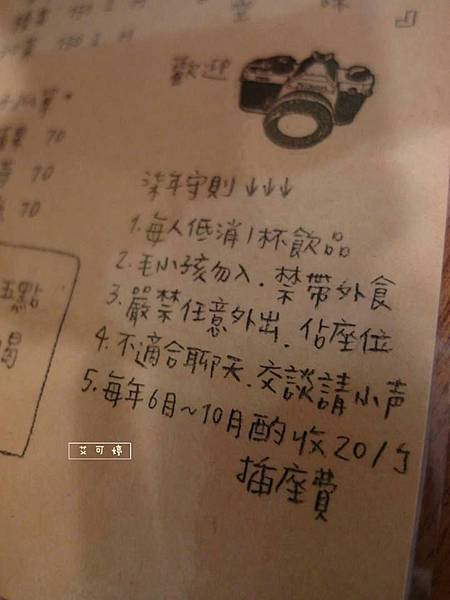 歡迎
柒年守則↓↓↓
1.每人低消1杯飲品
2.毛小孩勿入.禁帶外食
3.嚴禁任意外出.佔座位
4.不適合聊天.交談請小声
5.每年6月~10月酌收20/
插座費
70
70
70
五點
艾可婷